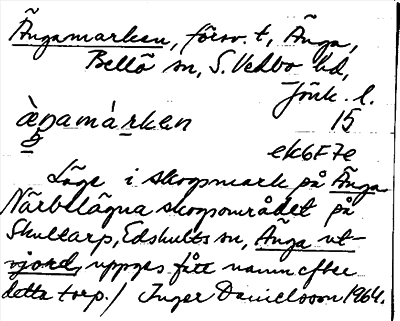 Ängamarken, försv. t, Änga,
Bellö sn, S. Vedbo hd,
Jönk. l.
ä̀ŋamárken 15
ek6F7e
Läge i skogsmark på Änga
Närbelägna skogsområdet på
Skultarp, Edshults sn, Änga ut-
jord, uppges fått namn efter
detta torp./ Inger Danielsson 1964.